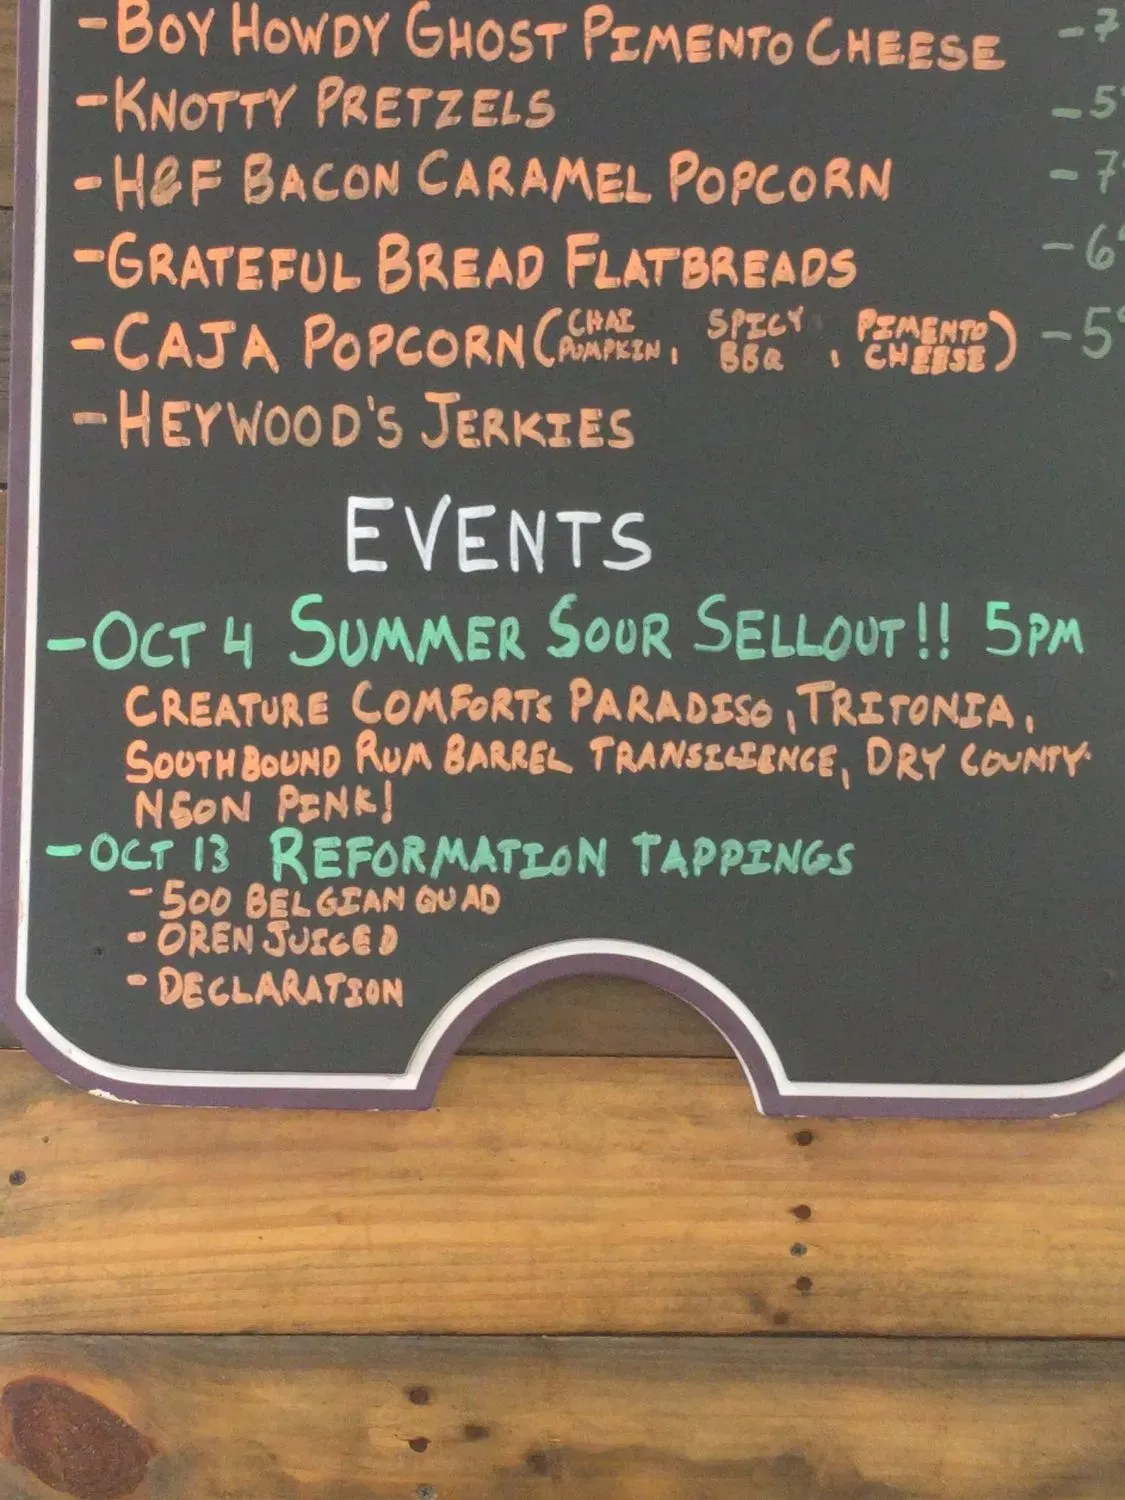 - BOY HOWDY GHOST PIMENTO CHEESE - 7
- KNOTTY PRETZELS - 5
- H&F BACON CARAMEL POPCORN - 7
- GRATEFUL BREAD FLATBREADS - 6
- CAJA POPCORN (CHAI PUMPKIN, SPICY BBQ, PIMENTO CHEESE) - 5
- HEYWOOD'S JERKIES
EVENTS
- OCT 4 SUMMER SOUR SELLOUT!! 5PM
CREATURE COMFORTS PARADISO, TRITONIA,
SOUTHBOUND RUM BARREL TRANSILIENCE, DRY COUNTY
NEON PINK!
- OCT 13 REFORMATION TAPPINGS
- 500 BELGIAN QUAD
- OREN JUICED
- DECLARATION